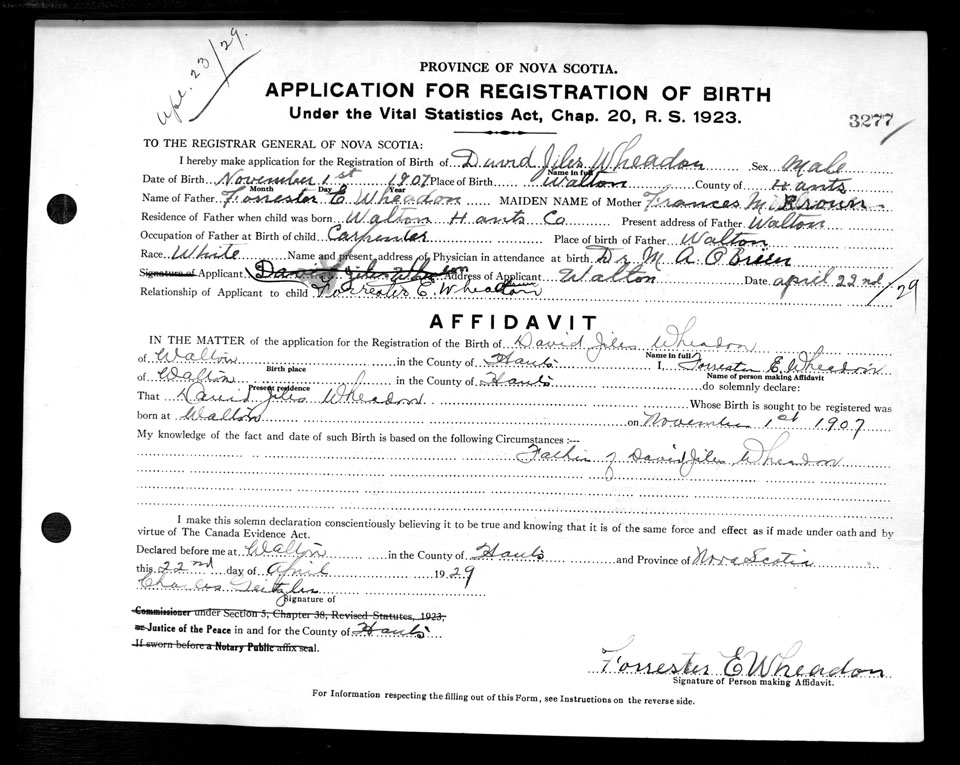 Apl. 23/29.
PROVINCE OF NOVA SCOTIA.
APPLICATION FOR REGISTRATION OF BIRTH
Under the Vital Statistics Act, Chap. 20, R. S. 1923.
3277
TO THE REGISTRAR GENERAL OF NOVA SCOTIA:
I hereby make application for the Registration of Birth of David Jiles Wheadon Sex Male
Name in full
Date of Birth November 1st 1907 Place of Birth Walton County of Hants
Month Day Year
Name of Father Forrester E. Wheadon MAIDEN NAME of Mother Frances M. Brown
Residence of Father when child was born Walton Hants Co Present address of Father Walton
Occupation of Father at Birth of child Carpenter Place of birth of Father Walton
Race White Name and present address of Physician in attendance at birth Dr M A O'Brien
Signature of Applicant David Jiles Wheadon Address of Applicant Walton Date April 22nd/29
Relationship of Applicant to child Forrester E. Wheadon
AFFIDAVIT
IN THE MATTER of the application for the Registration of the Birth of David Jiles Wheadon
Name in full
of Walton in the County of Hants I, Forrester E. Wheadon
Birth place Name of person making Affidavit
of Walton in the County of Hants do solemnly declare:
Present residence
That David Jiles Wheadon Whose Birth is sought to be registered was
born at Walton on November 1st 1907
My knowledge of the fact and date of such Birth is based on the following Circumstances :—
Father of David Jiles Wheadon
I make this solemn declaration conscientiously believing it to be true and knowing that it is of the same force and effect as if made under oath and by
virtue of The Canada Evidence Act.
Declared before me at Walton in the County of Hants and Province of Nova Scotia
this 22nd day of April 1929
Charles
Signature of
Commissioner under Section 5, Chapter 38, Revised Statutes, 1923,
or Justice of the Peace in and for the County of Hants
If sworn before a Notary Public affix seal.
Forrester E Wheadon
Signature of Person making Affidavit.
For Information respecting the filling out of this Form, see Instructions on the reverse side.